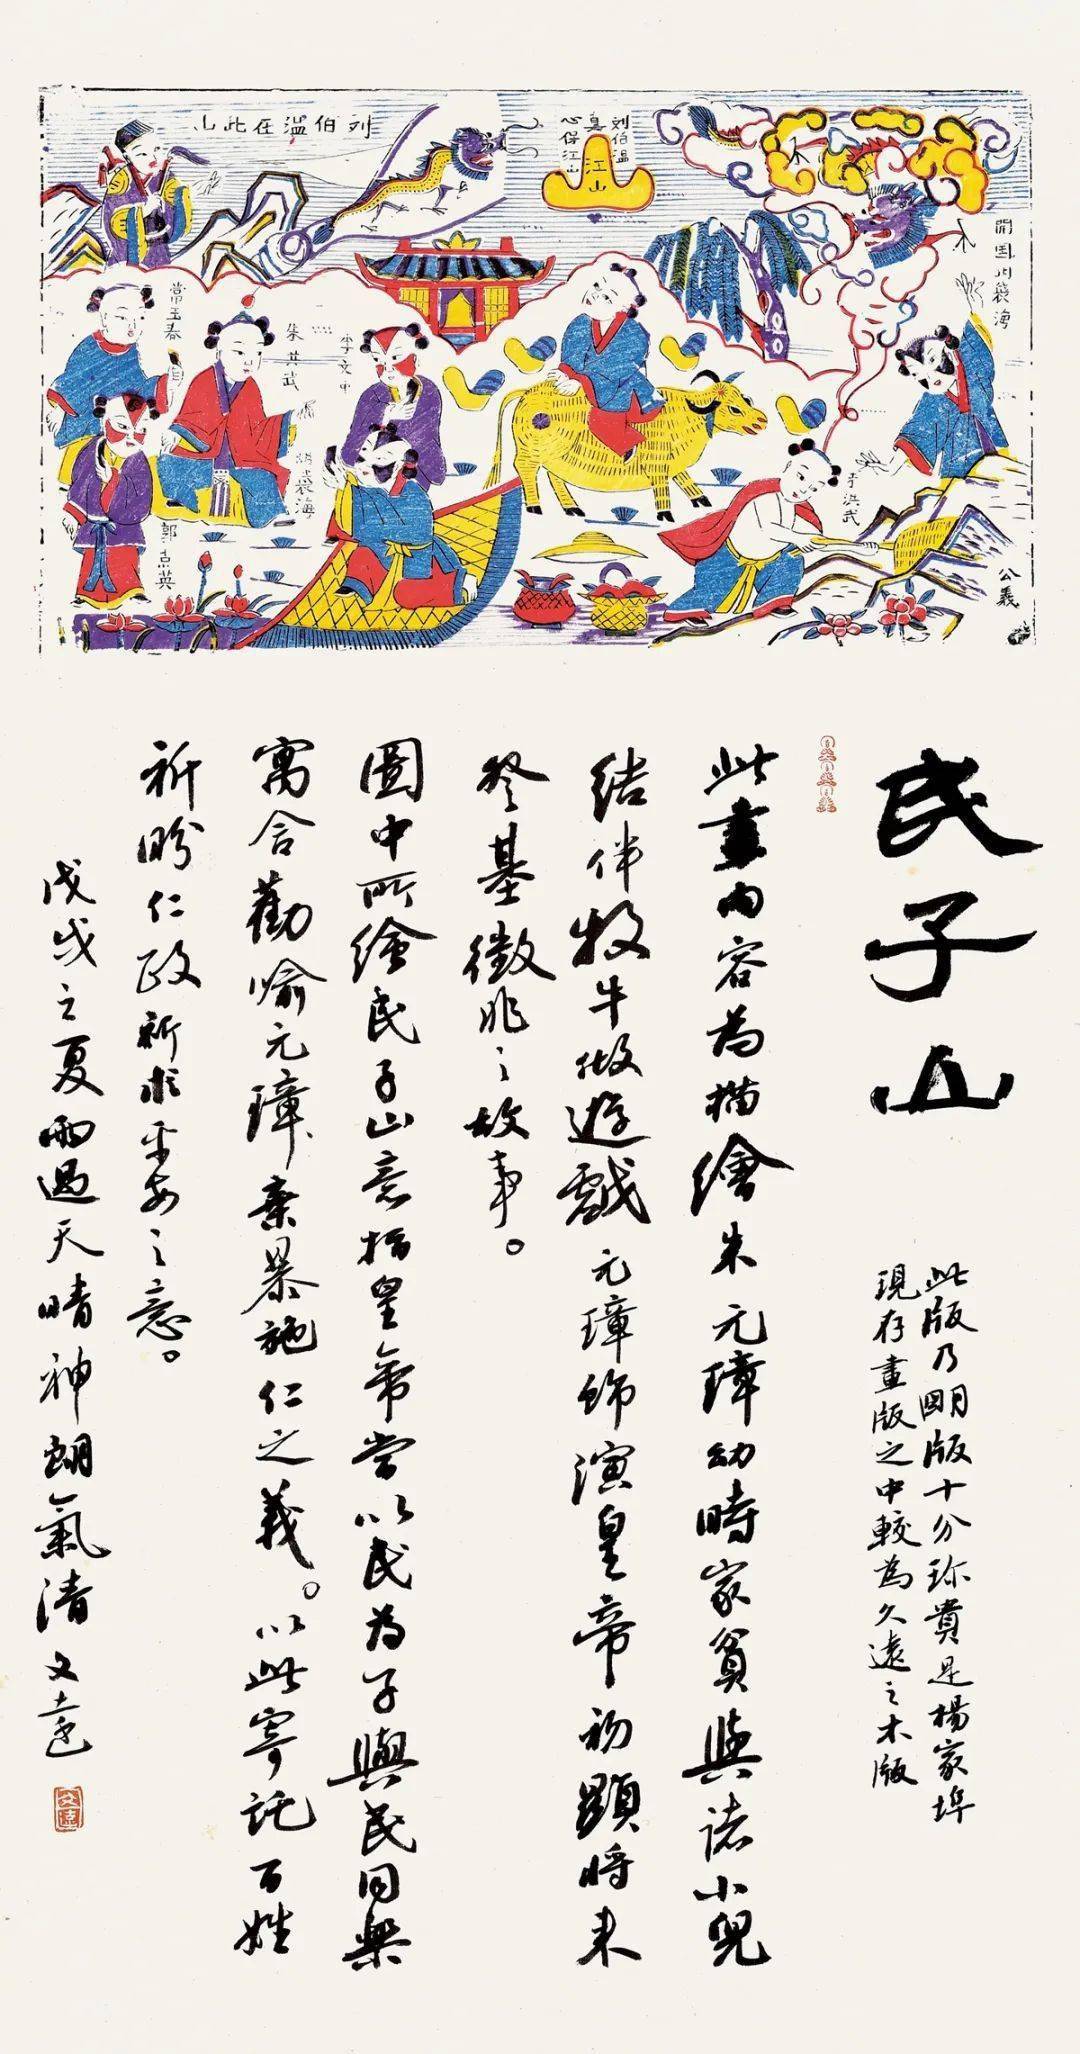 列伯溫在此山
刘伯温
真
心保江山
江山
木
木
開国川袋海
常玉春
朱洪武
李文中
胡袋海
郭点英
李洪武
公義
民子山
此版乃明版十分珎貴是楊家埠
現存畫版之中較為久遠之木版
此畫内容為描繪朱元璋幼時家貧與諸小兒
結伴牧牛做遊戲元璋飾演皇帝初顯將来
登基徵兆之故事。
圖中所繪民子山意指皇帝當以民為子與民同樂
寓含勸喻元璋棄暴施仁之義。以此寄託百姓
祈盼仁政祈求平安之意。
戊戌之夏雨過天晴神朗氣清文達
文達